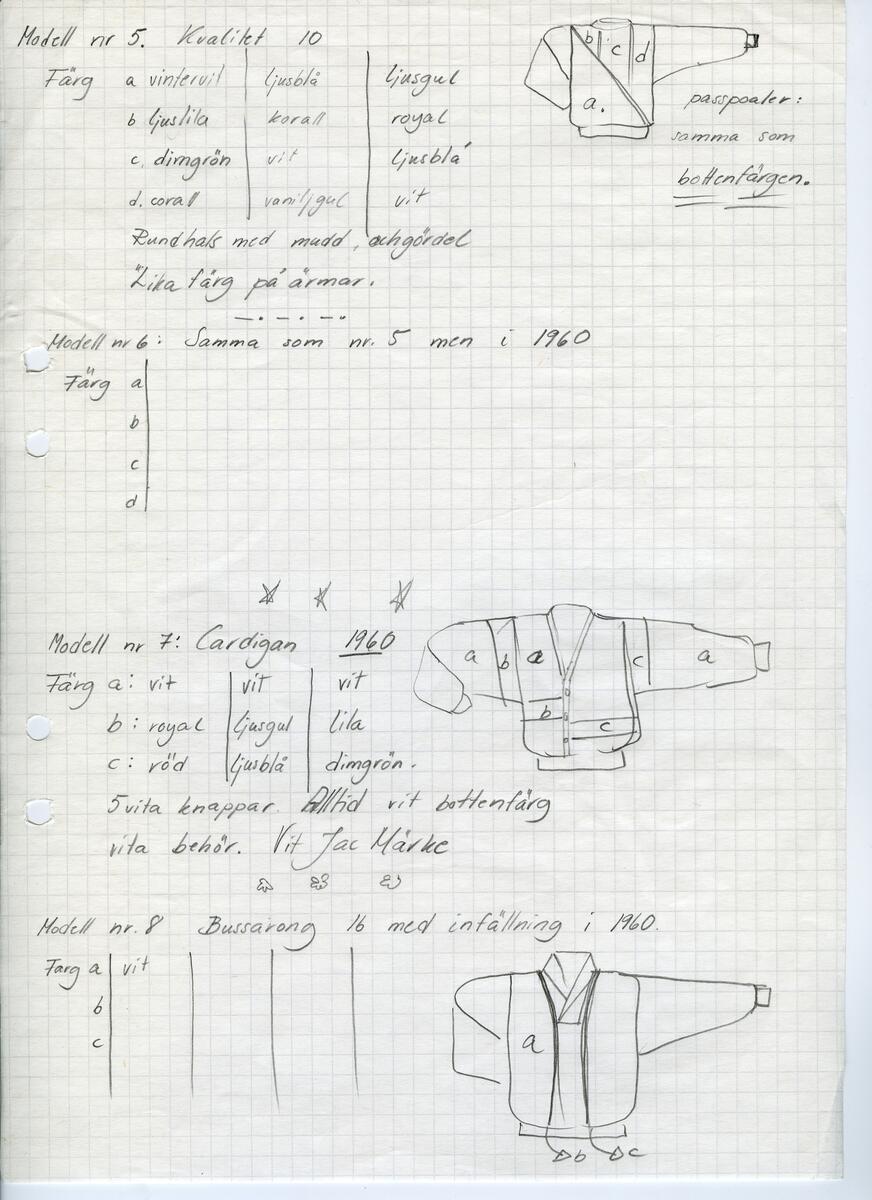 Modell nr 5. Kvalitet 10
Färg a vintervit ljusblå ljusgul
b ljuslila korall royal
c. dimgrön vit ljusblå
d. corall vaniljgul vit
Rundhals med mudd, ochgördel
Lika färg på ärmar.
b c d
a.
passpoaler:
samma som
bottenfärgen.
Modell nr 6: Samma som nr. 5 men i 1960
Färg a
b
c
d
Modell nr 7: Cardigan 1960
Färg a: vit vit vit
b: royal ljusgul lila
c: röd ljusblå dimgrön.
5 vita knappar. Alltid vit bottenfärg
vita behör. Vit Jac Märke
a b a c a
b
c
Modell nr. 8 Bussarong 16 med infällning i 1960.
Farg a vit
b
c
a
b c